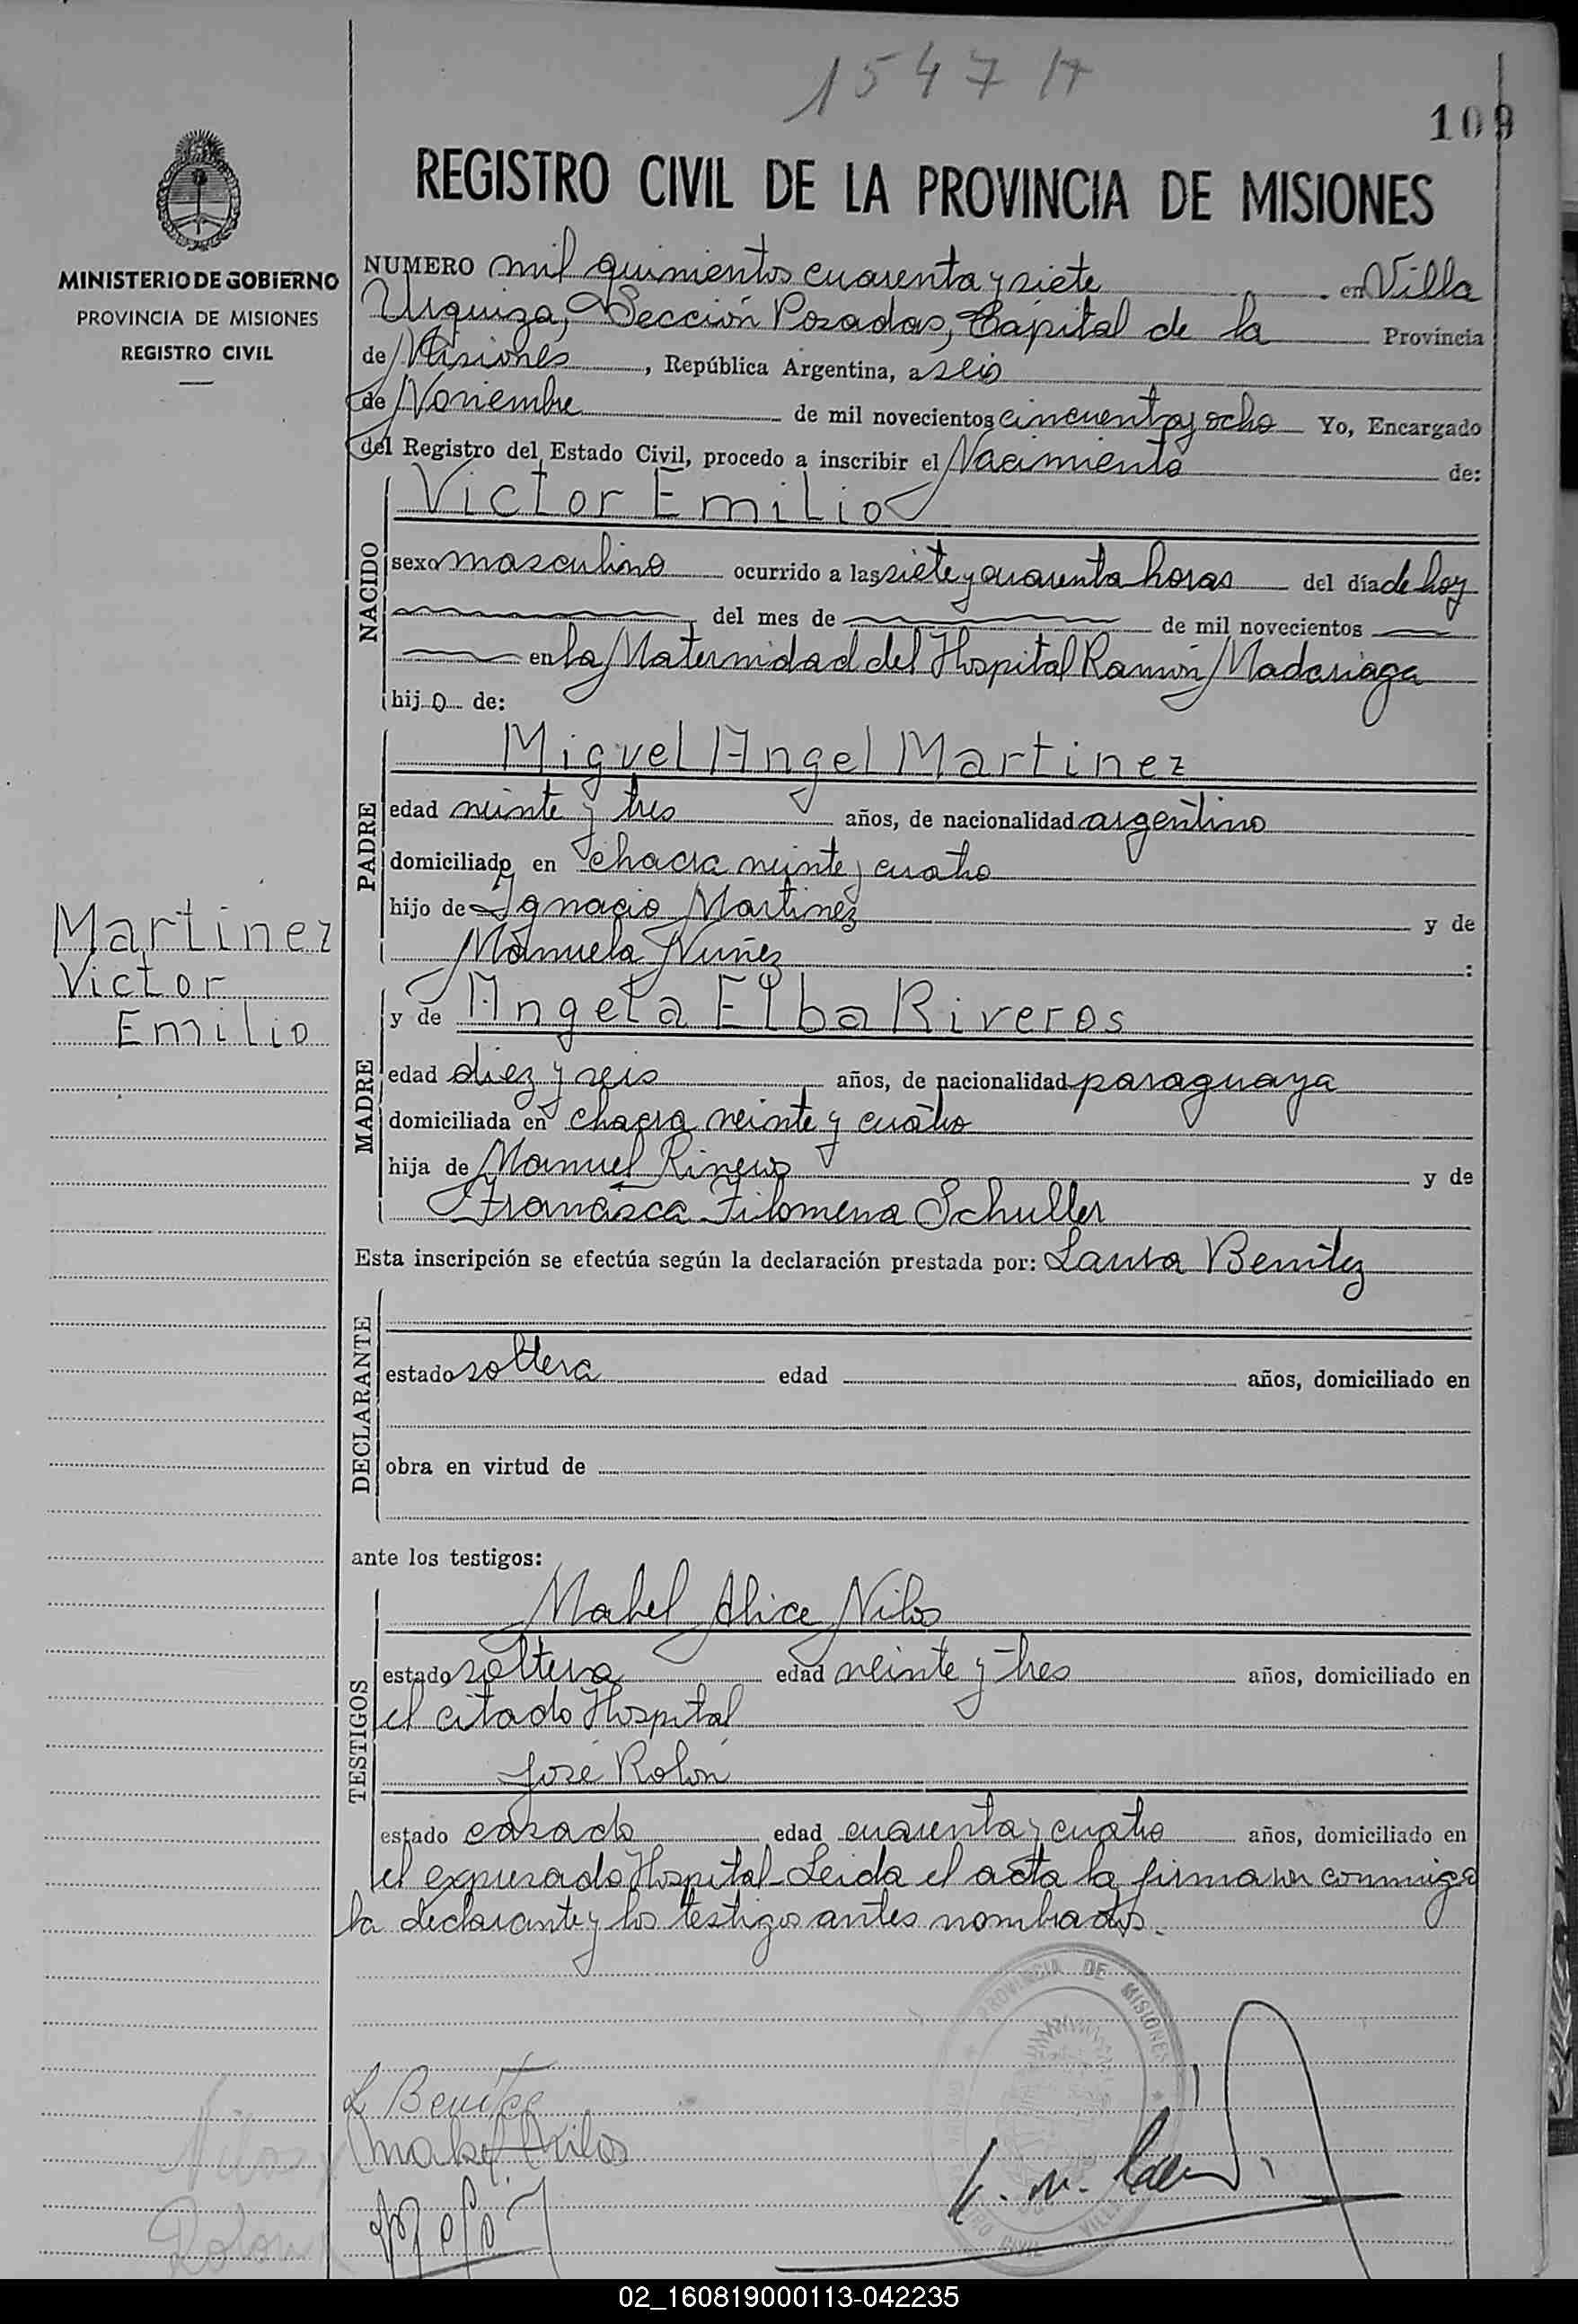 1547 A
109
REGISTRO CIVIL DE LA PROVINCIA DE MISIONES
MINISTERIO DE GOBIERNO
PROVINCIA DE MISIONES
REGISTRO CIVIL
NUMERO mil quinientos cuarenta y siete en Villa
Urquiza, Sección Posadas, Capital de la Provincia
de Misiones, República Argentina, a seis
de Noviembre de mil novecientos cincuenta y ocho Yo, Encargado
del Registro del Estado Civil, procedo a inscribir el Nacimiento de:
NACIDO
Victor Emilio
sexo masculino ocurrido a las siete y cuarenta horas del día de hoy
del mes de de mil novecientos
en la Maternidad del Hospital Ramón Madariaga
hijo de:
PADRE
Miguel Angel Martinez
edad veinte y tres años, de nacionalidad argentino
domiciliado en chacra veinte y cuatro
hijo de Ignacio Martinez y de
Manuela Nuñez :
Martinez
Victor
Emilio
MADRE
y de Angela Elba Riveros
edad diez y seis años, de nacionalidad paraguaya
domiciliada en chacra veinte y cuatro
hija de Manuel Riveros y de
Francisca Filomena Schuller
Esta inscripción se efectúa según la declaración prestada por: Laura Benitez
DECLARANTE
estado soltera edad años, domiciliado en
obra en virtud de
ante los testigos:
TESTIGOS
Mabel Alice Nilos
estado soltera edad veinte y tres años, domiciliado en
el citado Hospital
José Rolón
estado casado edad cuarenta y cuatro años, domiciliado en
el expresado Hospital - Leida el acta la firmaron conmigo
la declarante y los testigos antes nombrados.
PROVINCIA DE MISIONES
CIVIL VILLA
L Benitez
Mabel Nilos
Nilos
Rolon
02_160819000113-042235